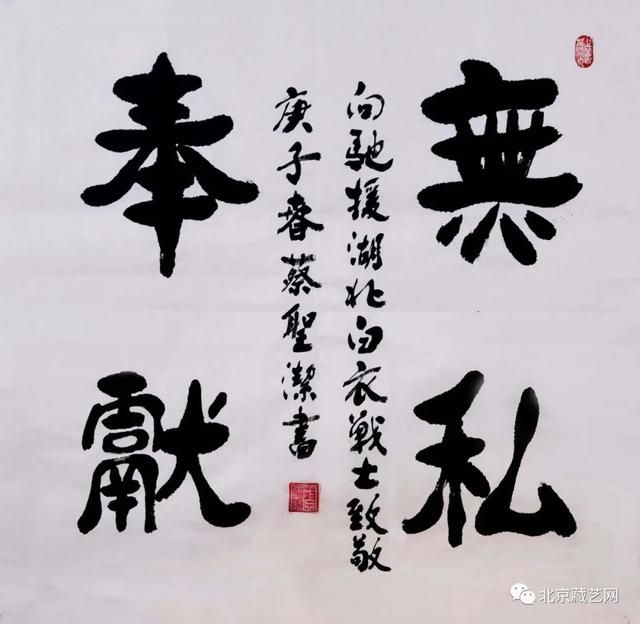 無私
向馳援湖北白衣戰士致敬
庚子春蔡聖潔書
奉獻
北京藏艺网